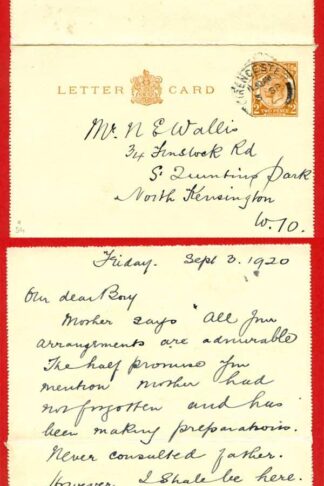 LETTER CARD
CIRENCESTER
2 TWO PENCE 2
Mr. N E Wallis
34 Finstock Rd
St Quintins Park
North Kensington
W. 10.
Friday. Sept 3. 1920
Our dear Boy
Mother says "All your
arrangements are admirable
The half promise you
mention Mother had
not forgotten and has
been making preparations.
Never consulted father.
However I shall be here.